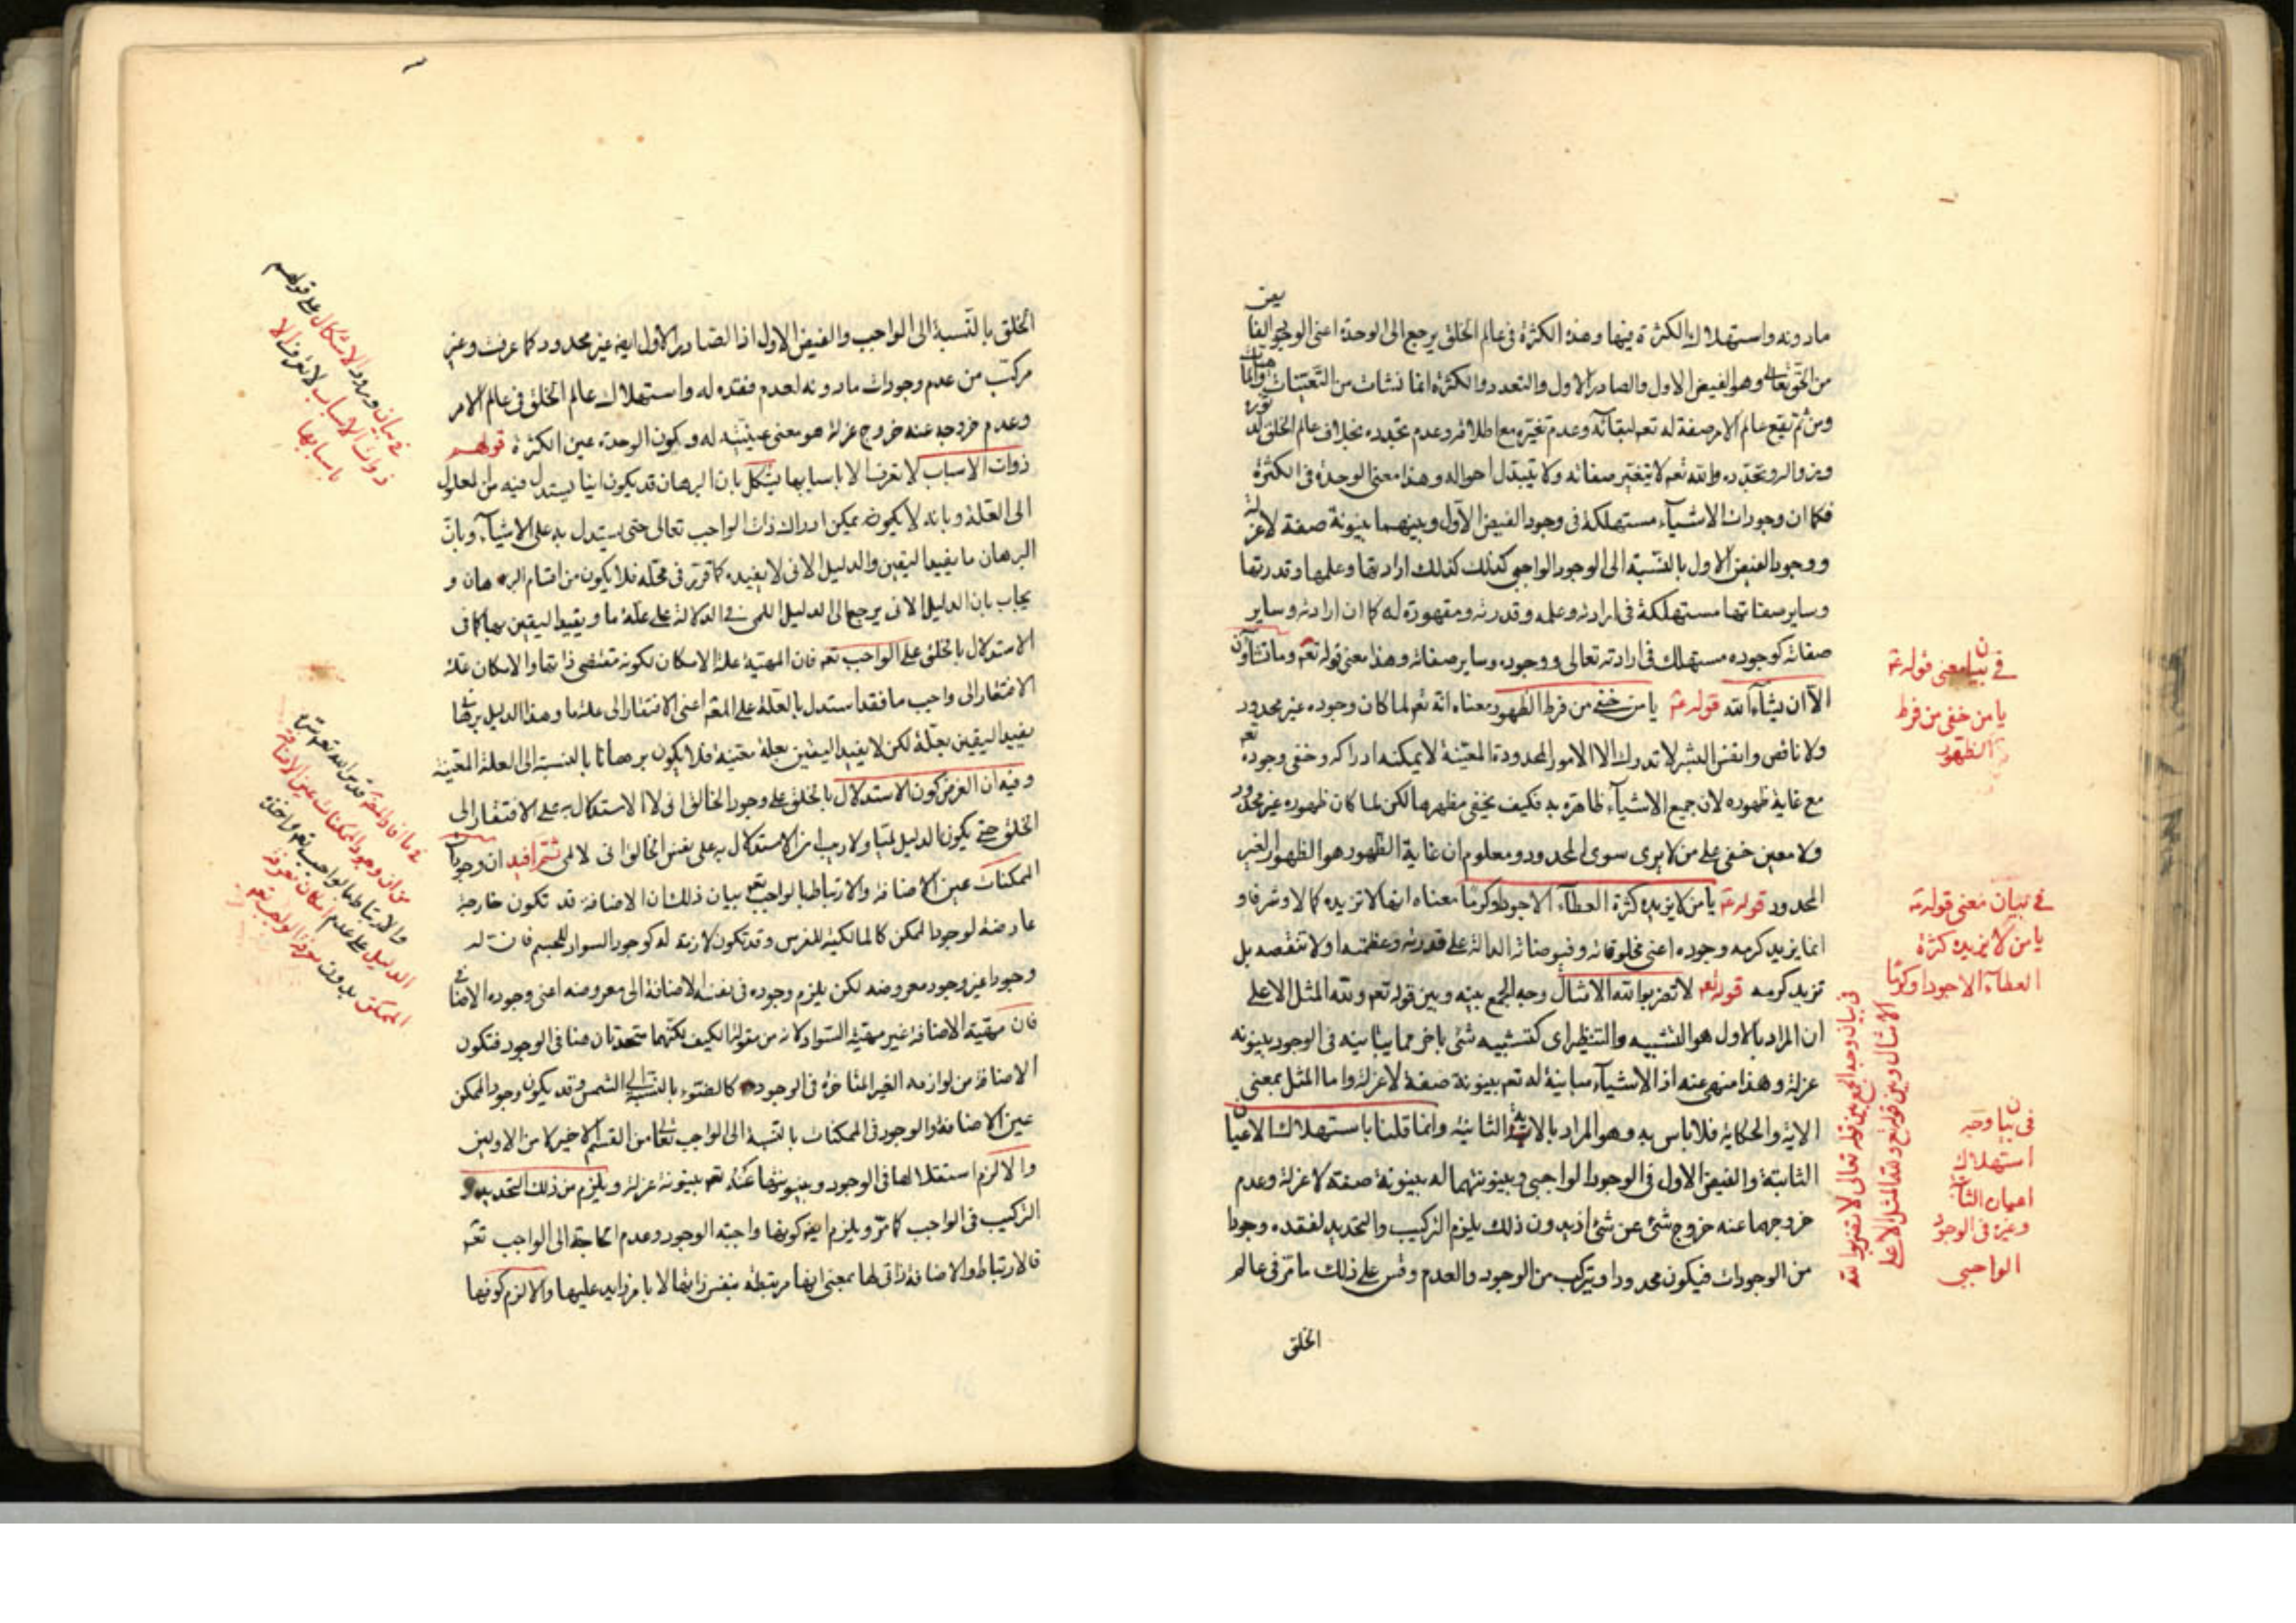 مادونه واستهلاك الكثرة فيها وهذه الكثرة في عالم الخلق يرجع الى الوحدة اعنى الوجود الفايض
من الحق تعالى وهو الفيض الاول والصادر الاول والتعدد والكثرة انما نشات من التعينات
ومن ثم يقع عالم الامر صفة له تعم لبقائه وعدم تغيره مع اطلاقه وعدم تحدده بخلاف عالم الخلق
وزواله وتجدده والله تعم لا يتغير صفاته ولا يتبدل احواله وهذا معنى الوحدة في الكثرة
فكما ان وجودات الاشياء مستهلكة في وجود الفيض الاول وبينهما بينونة صفة لا عزلة
ووجود الفيض الاول بالنسبة الى الوجود الواجبى كذلك كذلك ارادتها وعلمها وقدرتها
وساير صفاتها مستهلكة في ارادته وعلمه وقدرته ومقهورة له كما ان ارادته وساير
صفاته كوجوده مستهلك في ارادته تعالى ووجوده وساير صفاته وهذا معنى قوله تعم وما تشاؤن
الا ان يشاء الله قوله ع يا من خفى من فرط الظهور معناه انه تعم لما كان وجوده غير محدود
ولا ناقص وانفس البشر لا تدرك الا الامور المحدودة المعينة لا يمكنه ادراكه وخفى وجوده تعم
مع غاية ظهوره لان جميع الاشياء ظاهرة به فكيف يخفى مظهرها لكن لما كان ظهوره غير محدود
ولا معين خفى على من لا يرى سوى المحدود ومعلوم ان غاية الظهور هو الظهور الغير
المحدود قوله ع يا من لا يزيده كثرة العطاء الا جودا وكرما معناه انها لا تزيده كمالا وشرفا و
انما يزيد كرمه وجوده اعنى مخلوقاته وفيوضاته الدالة على قدرته وعظمته اولا تنقصه بل
تزيد كرمه قوله تعم لا تضربوا لله الامثال وجه الجمع بينه وبين قوله تعم ولله المثل الاعلى
ان المراد بالاول هو التشبيه والتنظير اى كتشبيه شئ باخر مما يباينه في الوجود بينونه
عزلة وهذا منهى عنه اذ الاشياء مباينة له تعم بينونة صفة لا عزلة واما المثل بمعنى
الاية والحكاية فلا باس به وهو المراد بالاية الثانية وانما قلنا باستهلاك الاعيان
الثابتة والفيض الاول في الوجود الواجبى وبينونتهما له بينونة صفة لا عزلة وعدم
خروجهما عنه خروج شئ عن شئ اذ بدون ذلك يلزم التركيب والتحديد لفقده وجودا
من الوجودات فيكون محدودا ويتركب من الوجود والعدم وقس على ذلك ما مر في عالم
الخلق
في بيان معنى قوله ع
يا من خفى من فرط
الظهور
في بيان معنى قوله ع
يا من لا يزيده كثرة
العطاء الا جودا وكرما
في بيان وجه الجمع بين قوله تعالى لا تضربوا لله
الامثال وبين قوله تع ولله المثل الاعلى
في بيان وجه
استهلاك
اعيان الثابتة
وغيره في الوجود
الواجبى
الخلق بالنسبة الى الواجب والفيض الاول اذ الصادر الاول ايض غير محدود كما عرفت وغير
مركب من عدم وجودات مادونه لعدم فقده له واستهلاك عالم الخلق في عالم الامر
وعدم خروجه عنه خروج عزلة هو معنى عينيته له وكون الوحدة عين الكثرة قولهم
ذوات الاسباب لا تعرف الا باسبابها يشكل بان البرهان قد يكون انيا يستدل فيه من المعلول
الى العلة وبانه لا يكون يمكن ادراك ذات الواجب تعالى حتى يستدل به على الاشياء وبان
البرهان ما يفيد اليقين والدليل الانى لا يفيده كما قرر في محله فلا يكون من اقسام البرهان و
يجاب بان الدليل الانى يرجع الى الدليل اللمى في الدلالة على علة ما ويفيد اليقين بها كما في
الاستدلال بالخلق على الواجب تعم فان المهية علة الامكان لكونه مقتضى ذاتها والامكان علة
الافتقار الى واجب ما فقد استدل بالعلة على المعلول اعنى الافتقار الى علة ما وهذا الدليل
يفيد اليقين بعلة لكن لا يفيد اليقين بعلة معينة فلا يكون برهانا بالنسبة الى العلة المعينة
وفيه ان الغرض كون الاستدلال بالخلق على وجود الخالق انى لا الاستدلال به على الافتقار الى
الخلق حتى يكون الدليل لميا ولا ريب ان الاستدلال به على نفس الخالق انى لا لمى ثم افيد ان وجود
الممكنات عين الاضافة والارتباط بالواجب تعم بيان ذلك ان الاضافة قد تكون خارجة
عارضة لوجود الممكن كالمالكية للفرس وقد تكون لازمة له كوجود السواد للجسم فان له
وجودا غير وجود معروضه لكن يلزم وجوده في نفسه الاضافة الى معروضه اعنى وجوده الاضافى
فان مهية الاضافة غير مهية السواد لانه من مقولة الكيف لكنهما متحدتان هنا في الوجود فتكون
الاضافة من لوازمه الغير المتاخرة في الوجود كالضوء بالنسبة الى الشمس وقد يكون وجود الممكن
عين الاضافة والوجود في الممكنات بالنسبة الى الواجب تعالى من القسم الاخير لا من الاولين
والا لزم استقلالها في الوجود وبينونتها عنه تعم بينونة عزلة ويلزم من ذلك التحديد و
التركيب في الواجب كما مر ويلزم ايض كونها واجبة الوجود وعدم الحاجة الى الواجب تعم
فالارتباط والاضافة ذاتى لها بمعنى انها مرتبطة بنفس ذاتها لا بامر زايد عليها والا لزم كونها
في بيان ورود الاشكال على قولهم
ذوات الاسباب لا تعرف الا
باسبابها
من ان وجود الممكنات عين الاضافة
والارتباط بالواجب تعم
الدليل على عدم امكان معرفة
الممكن بدون معرفة الواجب تعم